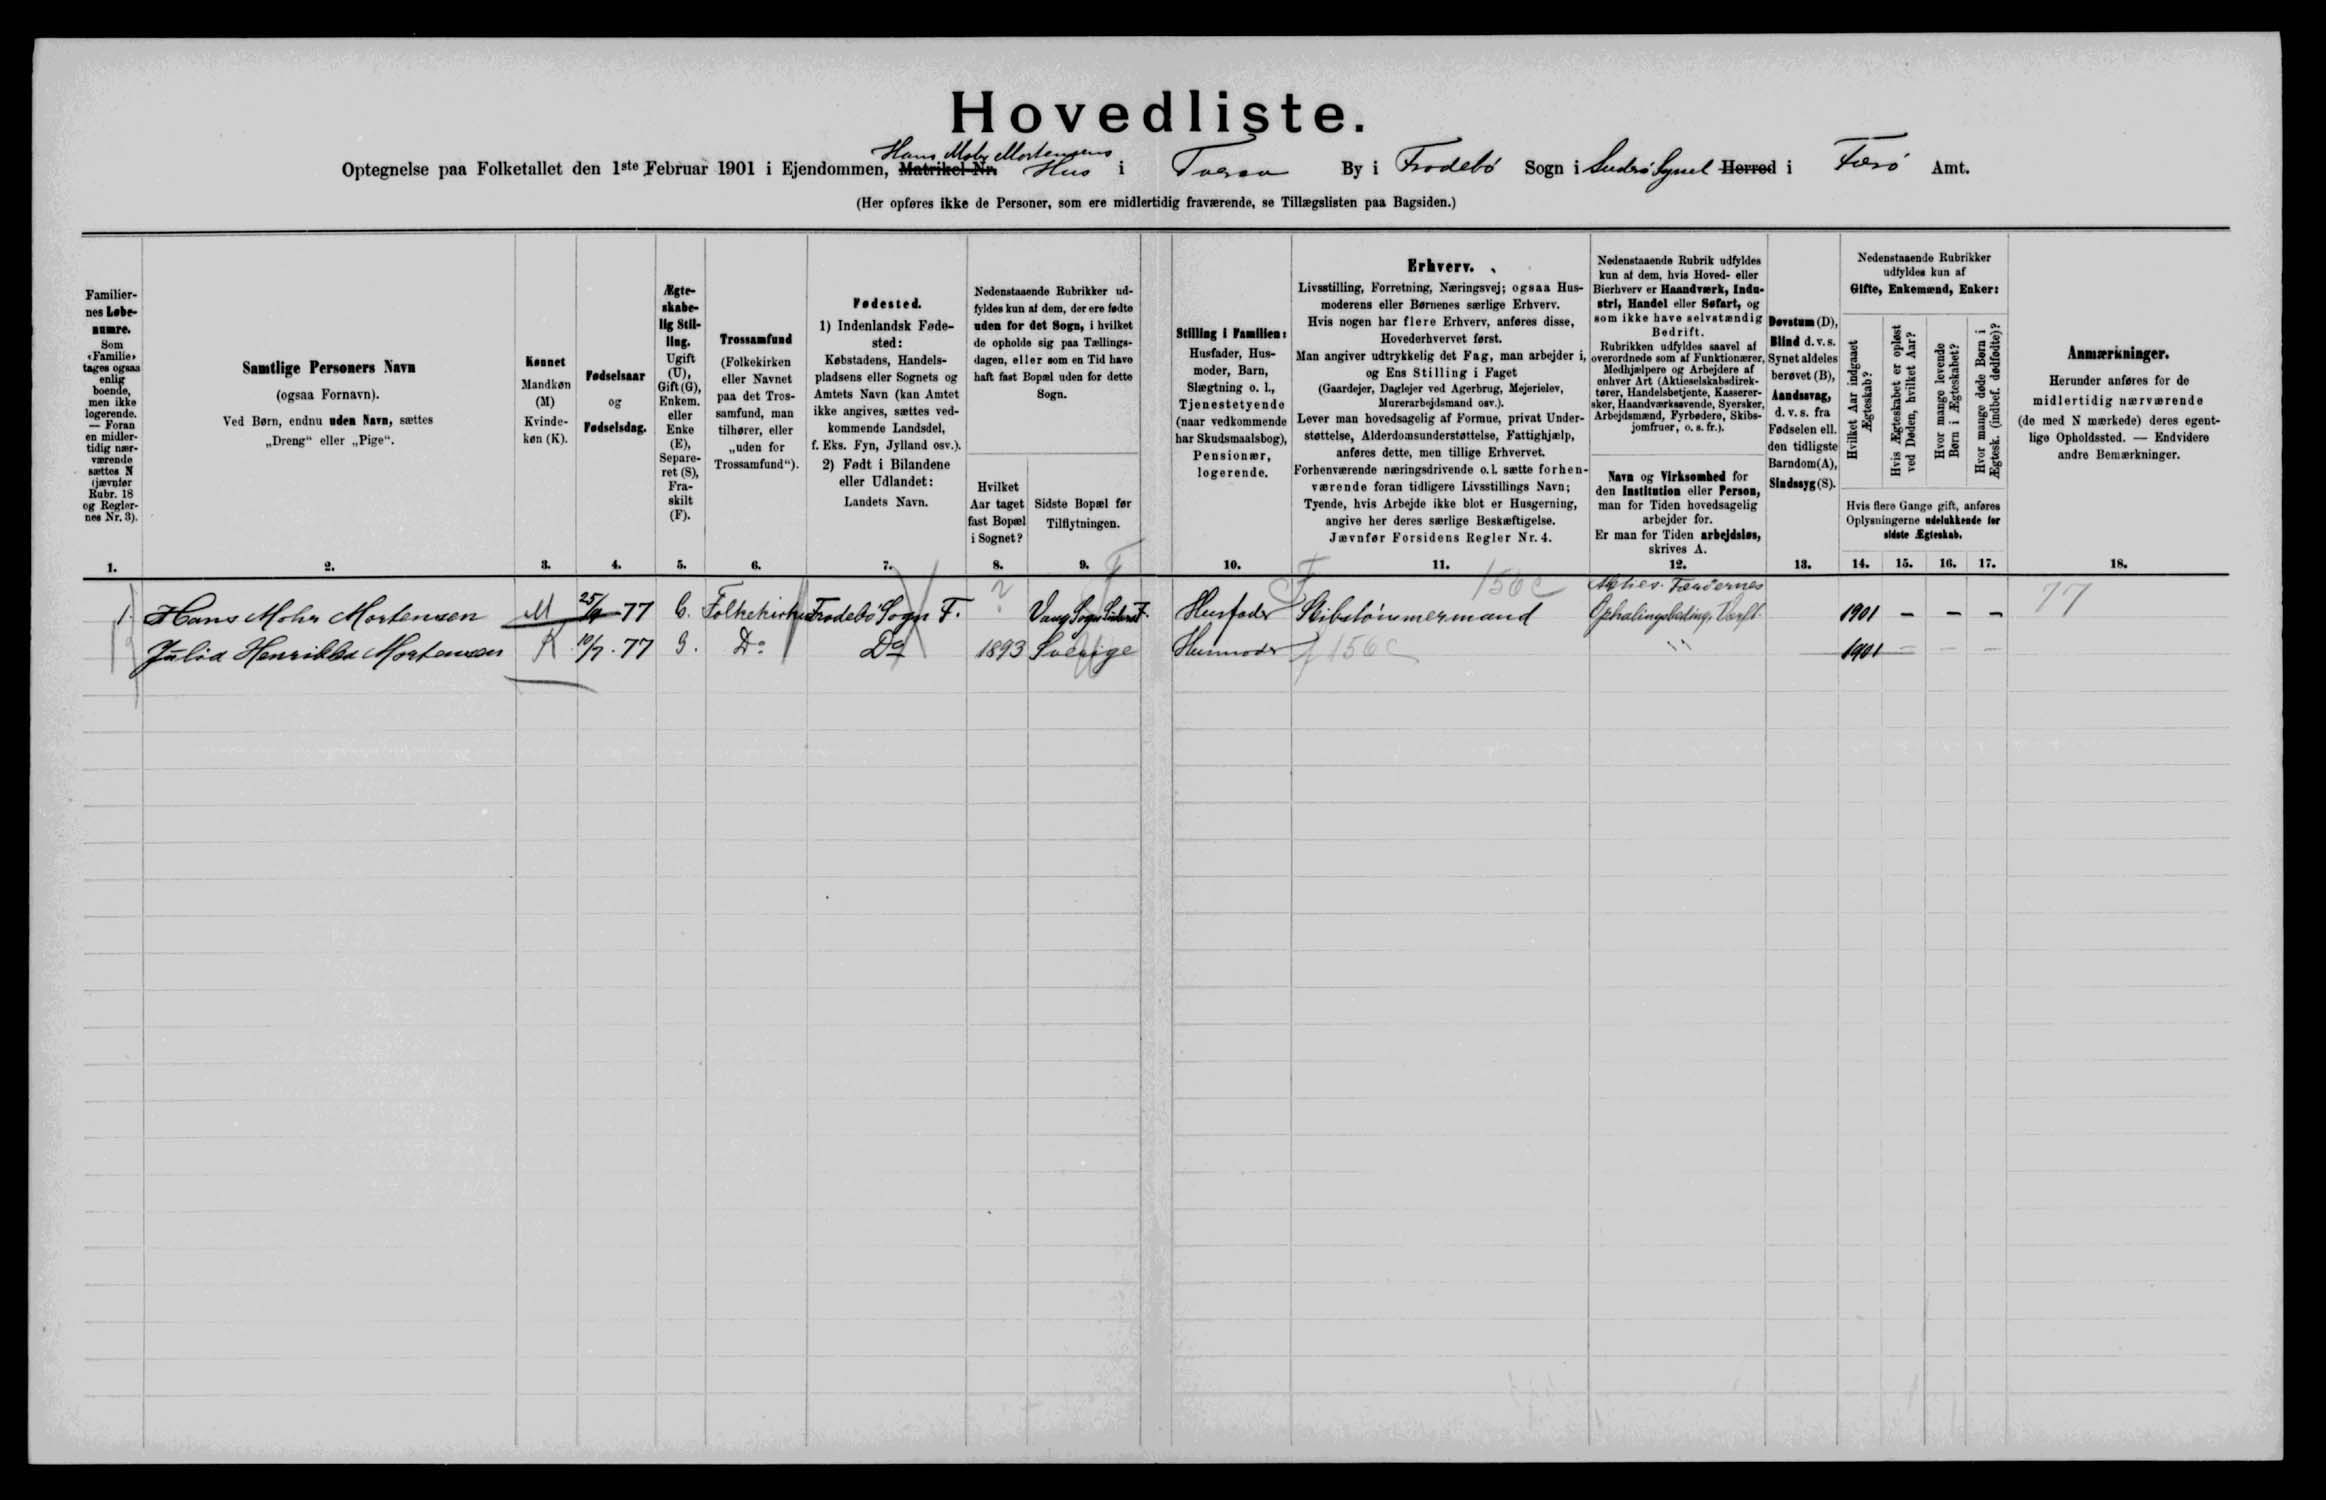 Hovedliste.
Hans Mohr Mortensens
Optegnelse paa Folketallet den 1ste Februar 1901 i Ejendommen, Matrikel-Nr. Hus i Tveraa By i Frodebö Sogn i Suderö Syssel Herred i Færö Amt.
(Her opføres ikke de Personer, som ere midlertidig fraværende, se Tillægslisten paa Bagsiden.)
Familiernes Løbenumre.
Som
«Familie»
tages ogsaa
enlig
boende,
men ikke
logerende.
— Foran
en midler-
tidig nær-
værende
sættes N
(jævnfør
Rubr. 18
og Regler-
nes Nr. 3).
Samtlige Personers Navn
(ogsaa Fornavn).
Ved Børn, endnu uden Navn, sættes
„Dreng“ eller „Pige“.
Kønnet
Mandkøn
(M)
Kvinde-
køn (K).
Fødselsaar
og
Fødselsdag.
Ægte-
skabe-
lig Stil-
ling.
Ugift
(U),
Gift (G),
Enkem.
eller
Enke
(E),
Separe-
ret (S),
Fra-
skilt
(F).
Trossamfund
(Folkekirken
eller Navnet
paa det Tros-
samfund, man
tilhører, eller
„uden for
Trossamfund“).
Fødested.
1) Indenlandsk Føde-
sted:
Købstadens, Handels-
pladsens eller Sognets og
Amtets Navn (kan Amtet
ikke angives, sættes ved-
kommende Landsdel,
f. Eks. Fyn, Jylland osv.).
2) Født i Bilandene
eller Udlandet:
Landets Navn.
Nedenstaaende Rubrikker ud-
fyldes kun af dem, der ere fødte
uden for det Sogn, i hvilket
de opholde sig paa Tællings-
dagen, eller som en Tid have
haft fast Bopæl uden for dette
Sogn.
Hvilket
Aar taget
fast Bopæl
i Sognet?
Sidste Bopæl før
Tilflytningen.
Stilling i Familien:
Husfader, Hus-
moder, Barn,
Slægtning o. l.,
Tjenestetyende
(naar vedkommende
har Skudsmaalsbog),
Pensionær,
logerende.
Erhverv.
Livsstilling, Forretning, Næringsvej; ogsaa Hus-
moderens eller Børnenes særlige Erhverv.
Hvis nogen har flere Erhverv, anføres disse,
Hovederhvervet først.
Man angiver udtrykkelig det Fag, man arbejder i,
og Ens Stilling i Faget
(Gaardejer, Daglejer ved Agerbrug, Mejerielev,
Murerarbejdsmand osv.).
Lever man hovedsagelig af Formue, privat Under-
støttelse, Alderdomsunderstøttelse, Fattighjælp,
anføres dette, men tillige Erhvervet.
Forhenværende næringsdrivende o. l. sætte forhen-
værende foran tidligere Livsstillings Navn;
Tyende, hvis Arbejde ikke blot er Husgerning,
angive her deres særlige Beskæftigelse.
Jævnfør Forsidens Regler Nr. 4.
Nedenstaaende Rubrik udfyldes
kun af dem, hvis Hoved- eller
Bierhverv er Haandværk, Indu-
stri, Handel eller Søfart, og
som ikke have selvstændig
Bedrift.
Rubrikken udfyldes saavel af
overordnede som af Funktionærer,
Medhjælpere og Arbejdere af
enhver Art (Aktieselskabsdirek-
tører, Handelsbetjente, Kasserer-
sker, Haandværkssvende, Syersker,
Arbejdsmænd, Fyrbødere, Skibs-
jomfruer, o. s. fr.).
Navn og Virksomhed for
den Institution eller Person,
man for Tiden hovedsagelig
arbejder for.
Er man for Tiden arbejdsløs,
skrives A.
Døvstum (D),
Blind d. v. s.
Synet aldeles
berøvet (B),
Aandssvag,
d. v. s. fra
Fødselen ell.
den tidligste
Barndom (A),
Sindssyg (S).
Nedenstaaende Rubrikker
udfyldes kun af
Gifte, Enkemænd, Enker:
Hvilket Aar indgaaet
Ægteskab?
Hvis Ægteskabet er opløst
ved Døden, hvilket Aar?
Hvor mange levende
Børn i Ægteskabet?
Hvor mange døde Børn i
Ægtesk. (indbef. dødfødte)?
Hvis flere Gange gift, anføres
Oplysningerne udelukkende for
sidste Ægteskab.
Anmærkninger.
Herunder anføres for de
midlertidig nærværende
(de med N mærkede) deres egent-
lige Opholdssted. — Endvidere
andre Bemærkninger.
1. 2. 3. 4. 5. 6. 7. 8. 9. 10. 11. 12. 13. 14. 15. 16. 17. 18.
1. Hans Mohr Mortensen M 25/9 77 G. Folkekirken Frodebö Sogn F. ? Vaag Sogn F. Husfader Skibstömmermand 156c 1901 — — — 77
Julia Henrikka Mortensen K. 10/7. 77 G. Do Do 1893 Sverige Husmoder f 156c " 1901 — — —